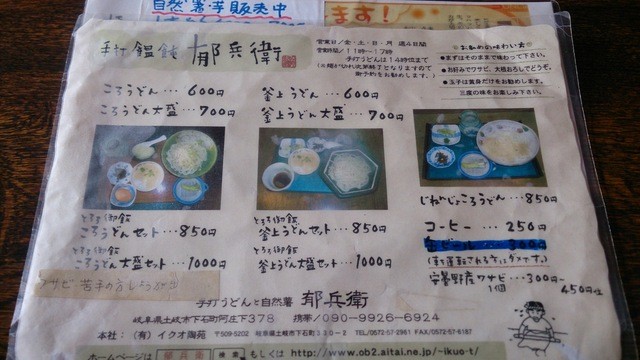 自然薯芋販売中
ます!
手打 饂飩 郁兵衛
営業日/金・土・日・月 週4日間
営業時間/11時〜17時
手打うどんは14時位まで
◎お勧めの味わい方◎
●まずはそのままで味わって下さい。
●お好みでワサビ、大根おろしでどうぞ。
●玉子は黄身だけをお勧めします。
三度の味をお楽しみ下さい。
ころうどん・・・600円
ころうどん大盛・・700円
釜上うどん・・・600円
釜上うどん大盛・・・700円
とろろ御飯
ころうどんセット・・・850円
とろろ御飯
ころうどん大盛セット・・1000円
とろろ御飯
釜上うどんセット・・・850円
とろろ御飯
釜上うどん大盛セット・・1000円
じねんじょころうどん・・・850円
コーヒー・・・250円
生ビール・・・300円
安曇野産ワサビ・・・300円〜
1個 450円位
手打うどんと自然薯 郁兵衛
岐阜県土岐市下石町阿庄下378 携帯/090-9926-6924
本社:(有)イクオ陶苑 〒509-5202 岐阜県土岐市下石町 TEL/0572-57-2961 FAX/0572-57-6451
ホームページは 郁兵衛 検索 もしくは http://www.ob2.aitai.ne.jp/~ikuo-t/